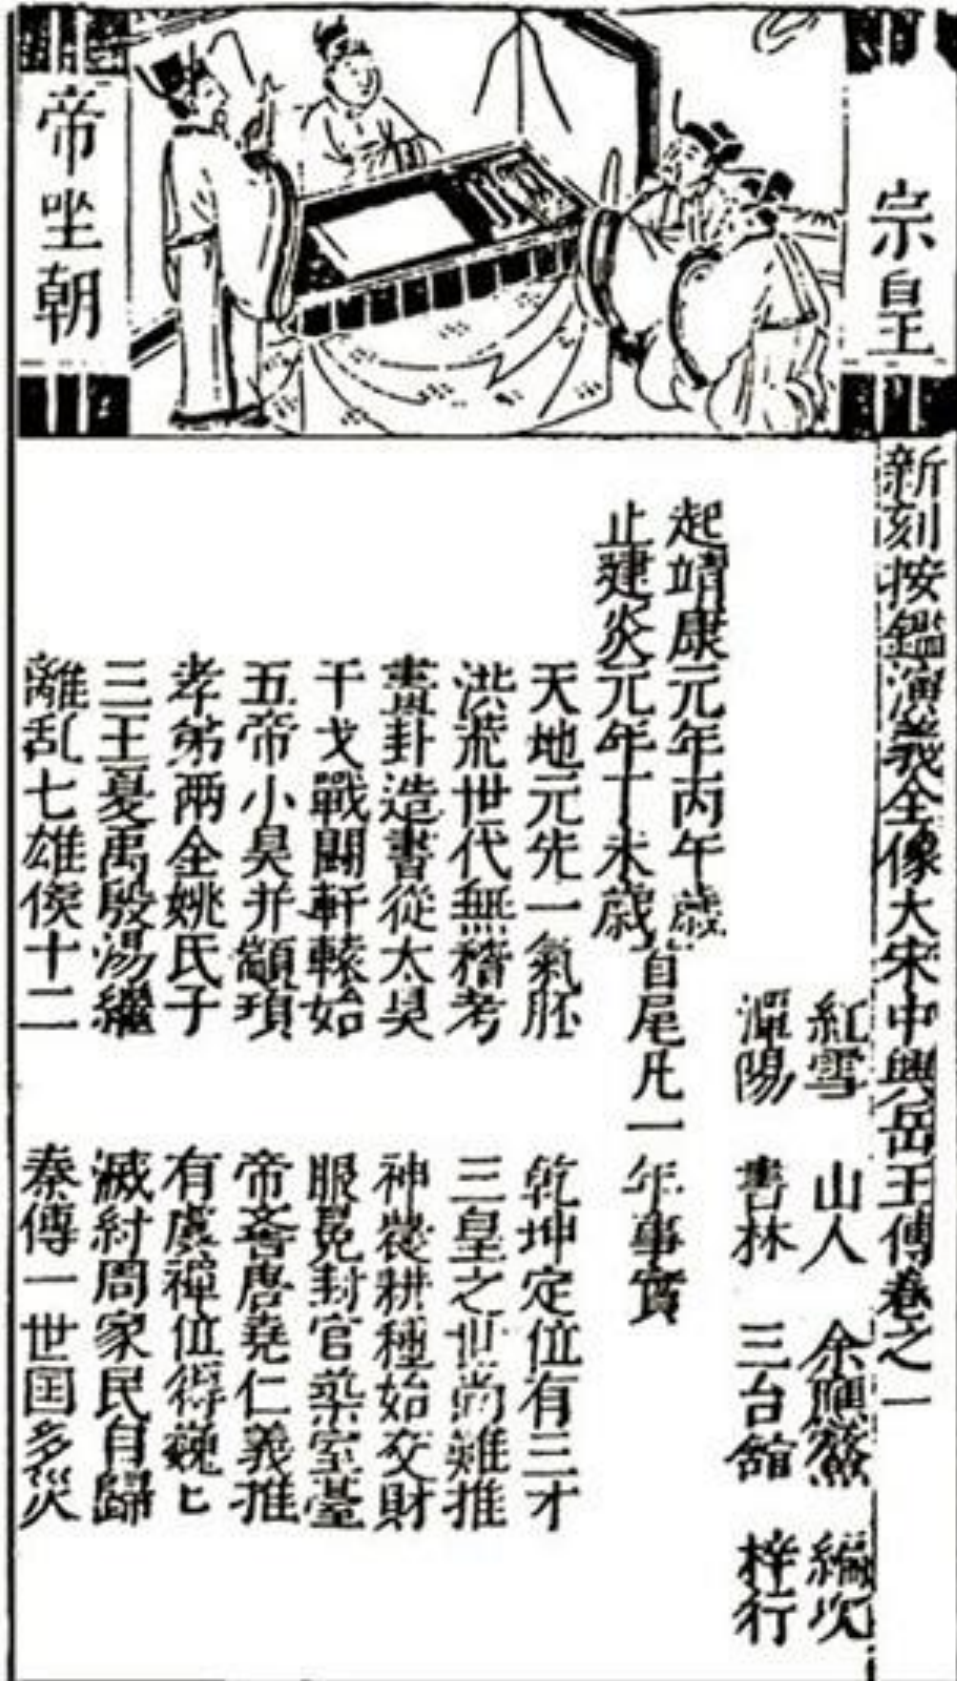 宗皇
帝坐朝
新刻按鑑演義全像大宋中興岳王傳卷之一
紅雪 山人 余應鰲 編次
潭陽 書林 三台館 梓行
起靖康元年丙午歲
止建炎元年丁未歲
首尾凡一年事實
天地元先一氣胚 乾坤定位有三才
洪荒世代無稽考 三皇之世尚難推
畫卦造書從太昊 神農耕種始交財
干戈戰鬪軒轅始 服冕封官築室臺
五帝小昊并顓頊 帝嚳唐堯仁義推
孝弟兩全姚氏子 有虞禪位衍巍匕
三王夏禹殷湯繼 滅紂周家民自歸
離乱七雄侯十二 秦傳一世国多災